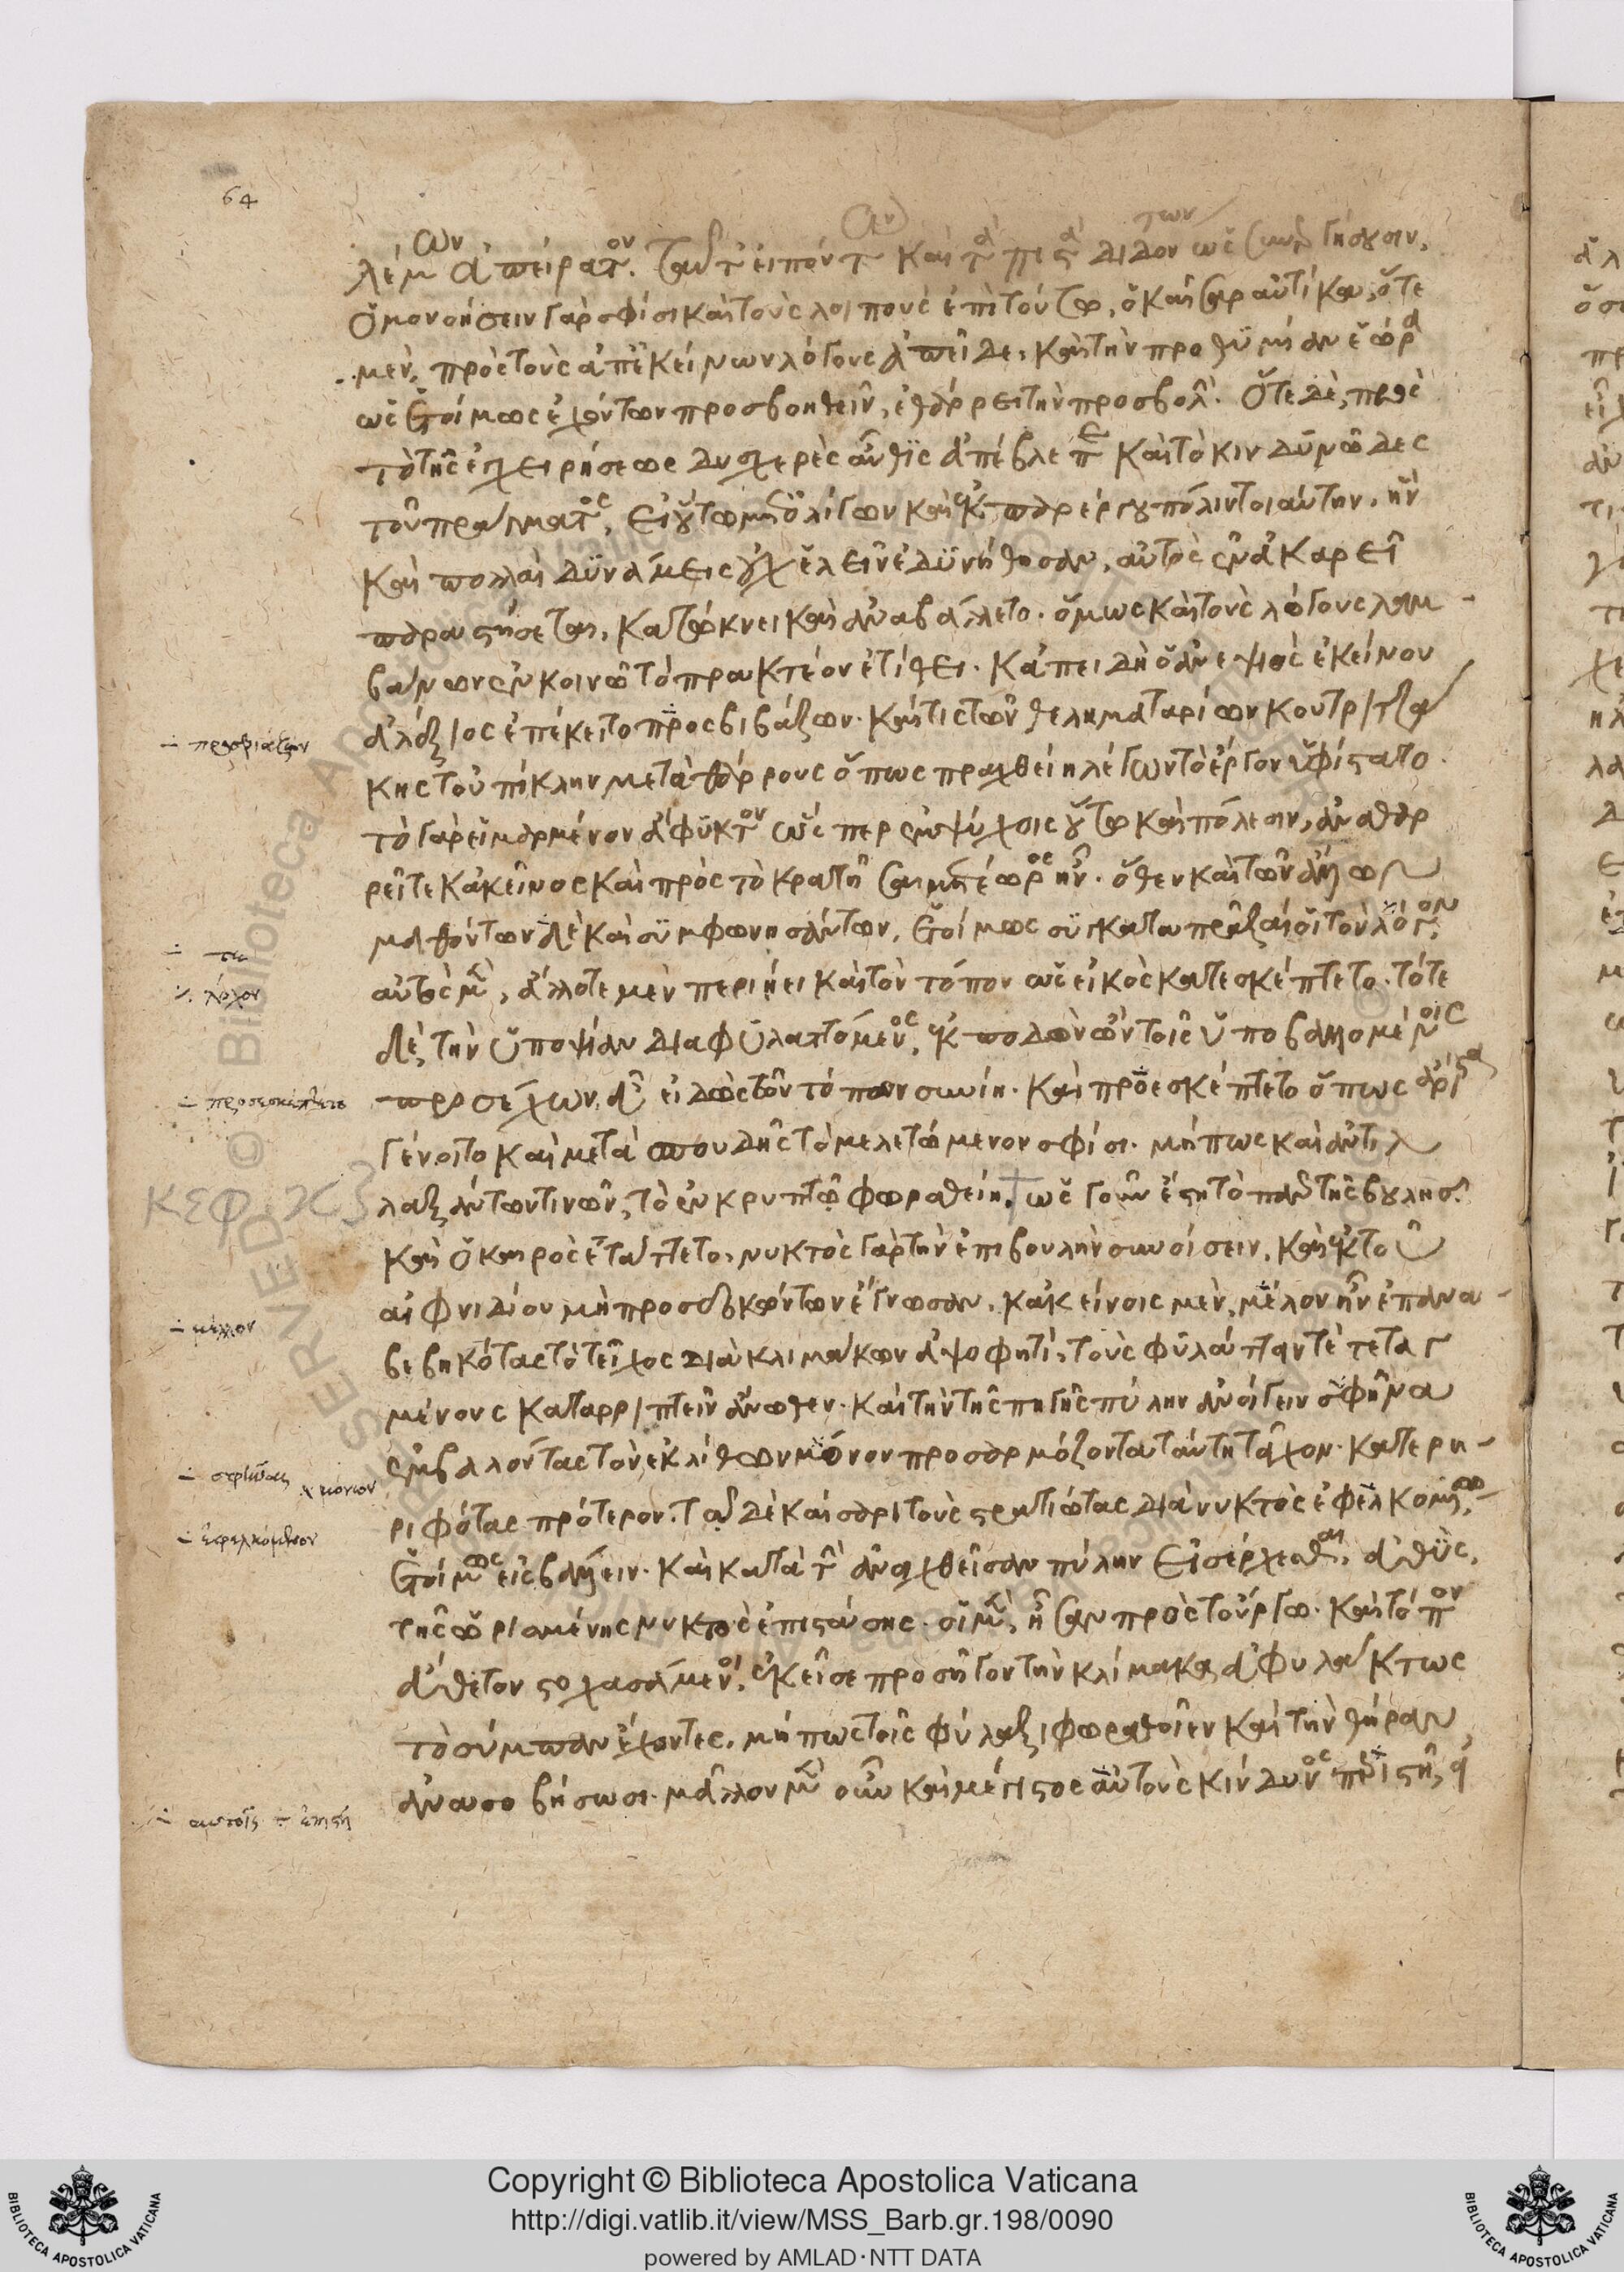 64
λέμων ἀπείρατον. ταῦτ' εἰπόντων καὶ τὰ πιστὰ διδόντων ὡς συνεργήσουσιν.
ὁμονοήσειν γὰρ σφίσι καὶ τοὺς λοιποὺς ἐπὶ τούτω, ὁ καῖσαρ αὐτίκα, ὅτε
μὲν, πρὸς τοὺς ἀπ' ἐκείνων λόγους ἀπεῖδε, καὶ τὴν προθυμίαν ἑώρα
ὡς ἑτοίμως ἐχόντων προσβοηθεῖν, ἐθάρρει τὴν προσβολήν. ὅτε δὲ, πρὸς
τὸ τῆς ἐγχειρήσεως δυσχερὲς αὖθις ἀπέβλεπε καὶ τὸ κινδυνῶδες
τοῦ πράγματος, εἰ οὕτω μετ' ὀλίγων καὶ ἐκ παρέργου πόλιν τοιαύτην, ἣν
καὶ πολλαὶ δυνάμεις οὐχ ἑλεῖν ἐδυνήθησαν, αὐτὸς ἐν ἀκαρεῖ
παραστήσεται, κατώκνει καὶ ἀνεβάλλετο. ὅμως καὶ τοὺς λόγους λαμ-
βάνων ἐν κοινῶ τὸ πρακτέον ἐτίθει. κἀπειδὴ ὁ ἀνεψιὸς ἐκείνου
ἀλέξιος ἐπέκειτο προσβιβάζων. καί τις τῶν θεληματαρίων κουτριτζά
κης τοὐπίκλην μετὰ θάρρους ὅπως πραχθείη λέγων τὸ ἔργον ὑφίστατο.
τὸ γὰρ εἱμαρμένον ἄφυκτον ὥς περ ἐμψύχοις οὕτω καὶ πόλεσιν, ἀναθαρ
ρεῖ τε κἀκεῖνος καὶ πρὸς τὸ κρατῆσαι μετέωρος ἦν. ὅθεν καὶ τῶν ἄλλων
μαθόντων δὲ καὶ συμφωνησάντων, ἑτοίμως συγκαταπρᾶξαι οἱ τὸν λόγον,
αὐτὸς μὲν, ἄλλοτε μὲν περιῄει καὶ τὸν τόπον ὡς εἰκὸς κατεσκέπτετο. τότε
δὲ, τὴν ὑποψίαν διαφυλαττόμενος, ἐκποδὼν ὢν τοῖς ὑποβαλλομένοις
προσέχων, ἅτ' εἰδὼς τὸν τόπον συνίῃ. καὶ προεσκέπτετο ὅπως ἄριστα
γένοιτο καὶ μετὰ σπουδῆς τὸ μελετώμενον σφίσι. μή πως καὶ ἀντιλ
λαξάντων τινῶν, τὸ ἐν κρυπτῶ φωραθείη. ὡς γοῦν ἔστη τὸ πᾶν τῆς βουλῆς.
καὶ ὁ καιρὸς ἐτάττετο, νυκτὸς γὰρ τὴν ἐπιβουλὴν συνοίσειν, καὶ ἐκ τοῦ
αἰφνιδίου μὴ προσδοκώντων ἔγνωσαν. κἀκείνοις μὲν, μέλον ἦν ἐπανα-
βεβηκότας τὸ τεῖχος διὰ κλιμάκων ἀψοφητί, τοὺς φυλάττειν τετα γ
μένους καταρρίπτειν ἄνωθεν. καὶ τὴν τῆς πηγῆς πύλην ἀνοίγειν σφῆνα
ἐμβαλόντας τὸν ἐκ λίθων μόνον προσαρμόζοντα ταύτη τάχον. κατερη-
ριφότας πρότερον. τῶ δὲ καίσαρι τοὺς στρατιώτας διὰ νυκτὸς ἐφελκομένω,
ἑτοίμως εἰσβάλλειν. καὶ κατὰ τὴν ἀνοιχθεῖσαν πύλην εἰσέρχεσθαι, εὐθὺς,
τῆς ὡρισμένης νυκτὸς ἐπιστάσης. οἱ μὲν, ἦσαν πρὸς τοὔργω. καὶ τόπον
εὔθετον στοχασάμενοι, ἐκεῖσε προσῆγον τὴν κλίμακα, ἀφυλάκτως
τὸ σύμπαν ἔχοντες. μή πως τοῖς φύλαξι φωραθοῖεν καὶ τὴν θήραν
ἀνασοβήσωσι. μᾶλλον μὲν οὖν καὶ μέγιστος αὐτοὺς κίνδυνος περιστῆ,
÷ προσβιάζων
÷ λόχον
÷ προεσκέπτετο
ΚΕΦ. ΚΖ
÷ μέλλον
÷ ἐφελκόμενον
÷ αυτοῖς ÷ ἐπιστῆ
Copyright © Biblioteca Apostolica Vaticana
http://digi.vatlib.it/view/MSS_Barb.gr.198/0090
powered by AMLAD·NTT DATA
BIBLIOTECA APOSTOLICA VATICANA
BIBLIOTECA APOSTOLICA VATICANA